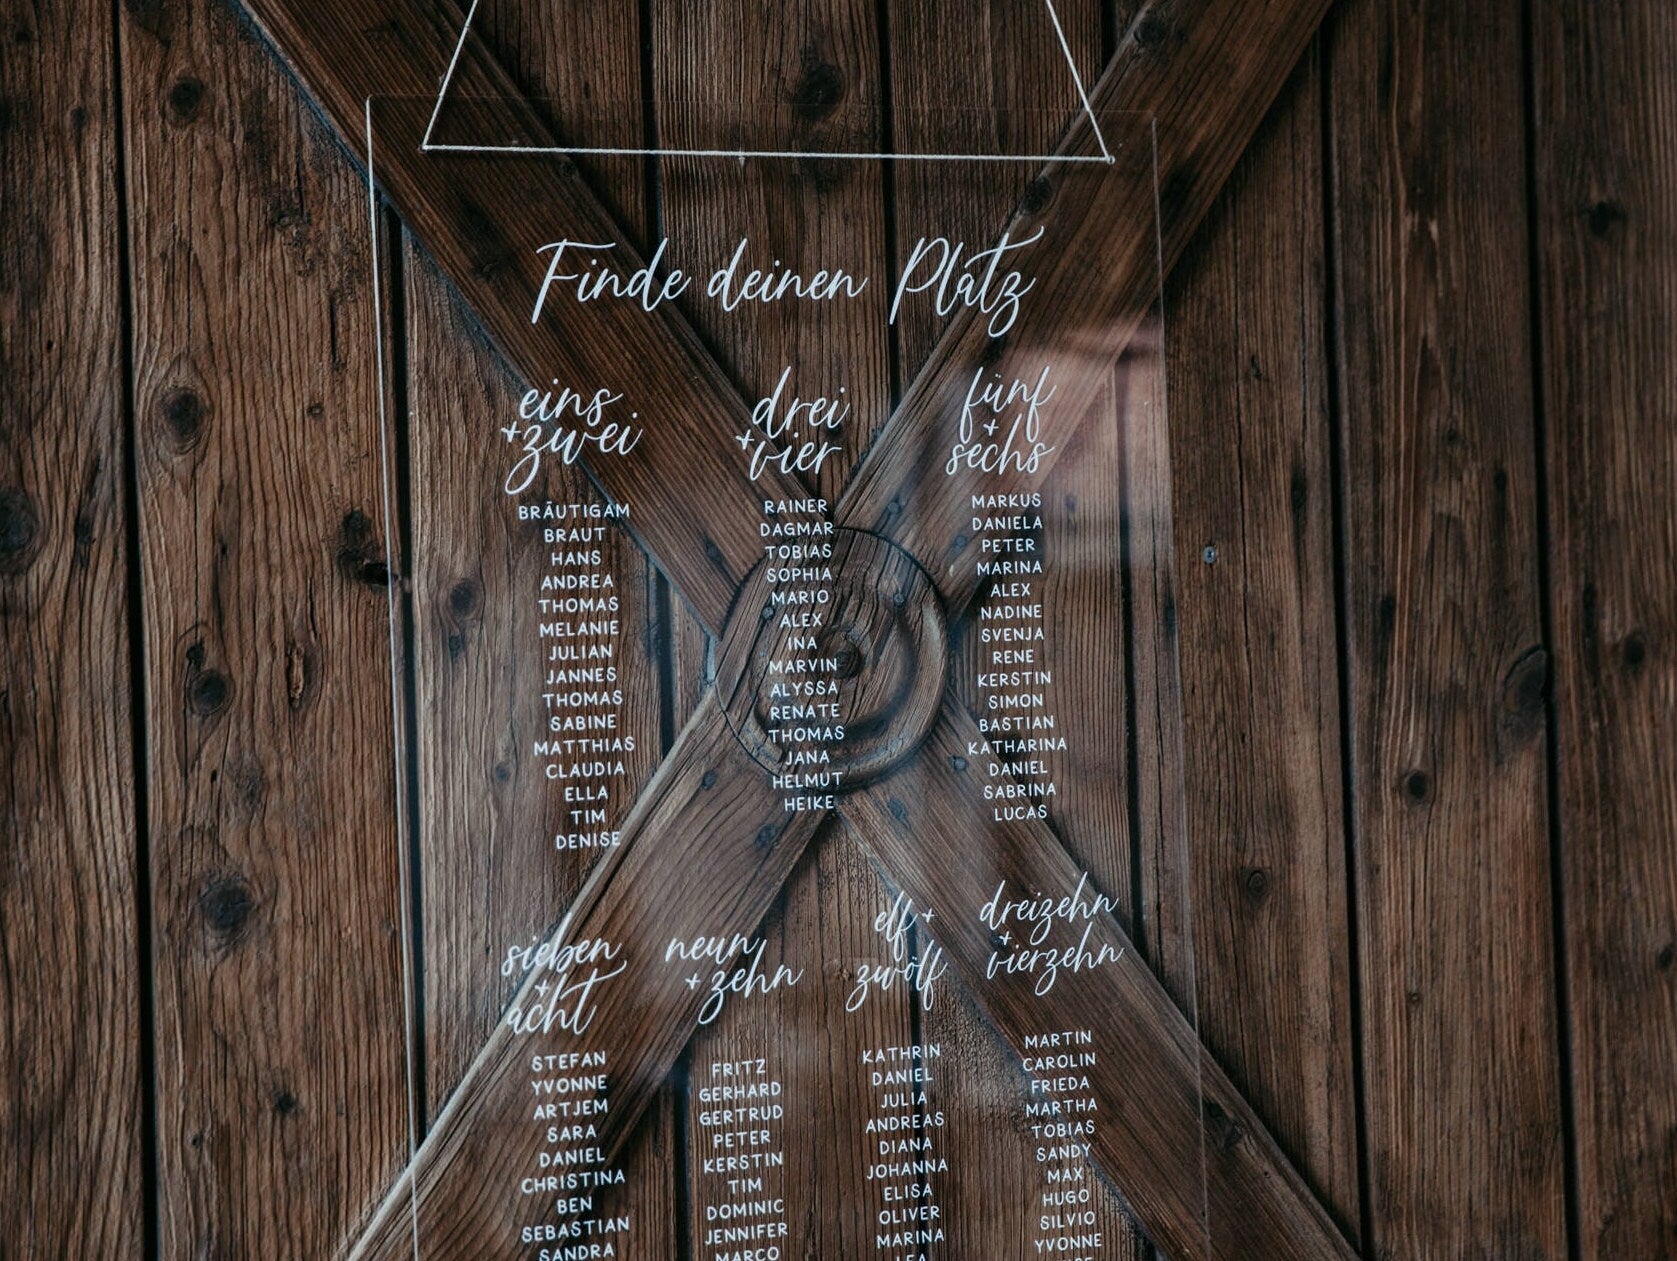 Finde deinen Platz
eins
+zwei
BRÄUTIGAM
BRAUT
HANS
ANDREA
THOMAS
MELANIE
JULIAN
JANNES
THOMAS
SABINE
MATTHIAS
CLAUDIA
ELLA
TIM
DENISE
drei
+vier
RAINER
DAGMAR
TOBIAS
SOPHIA
MARIO
ALEX
INA
MARVIN
ALYSSA
RENATE
THOMAS
JANA
HELMUT
HEIKE
fünf
+
sechs
MARKUS
DANIELA
PETER
MARINA
ALEX
NADINE
SVENJA
RENE
KERSTIN
SIMON
BASTIAN
KATHARINA
DANIEL
SABRINA
LUCAS
sieben
+
acht
STEFAN
YVONNE
ARTJEM
SARA
DANIEL
CHRISTINA
BEN
SEBASTIAN
SANDRA
neun
+zehn
FRITZ
GERHARD
GERTRUD
PETER
KERSTIN
TIM
DOMINIC
JENNIFER
MARCO
elf +
zwölf
KATHRIN
DANIEL
JULIA
ANDREAS
DIANA
JOHANNA
ELISA
OLIVER
MARINA
LEA
dreizehn
+
vierzehn
MARTIN
CAROLIN
FRIEDA
MARTHA
TOBIAS
SANDY
MAX
HUGO
SILVIO
YVONNE